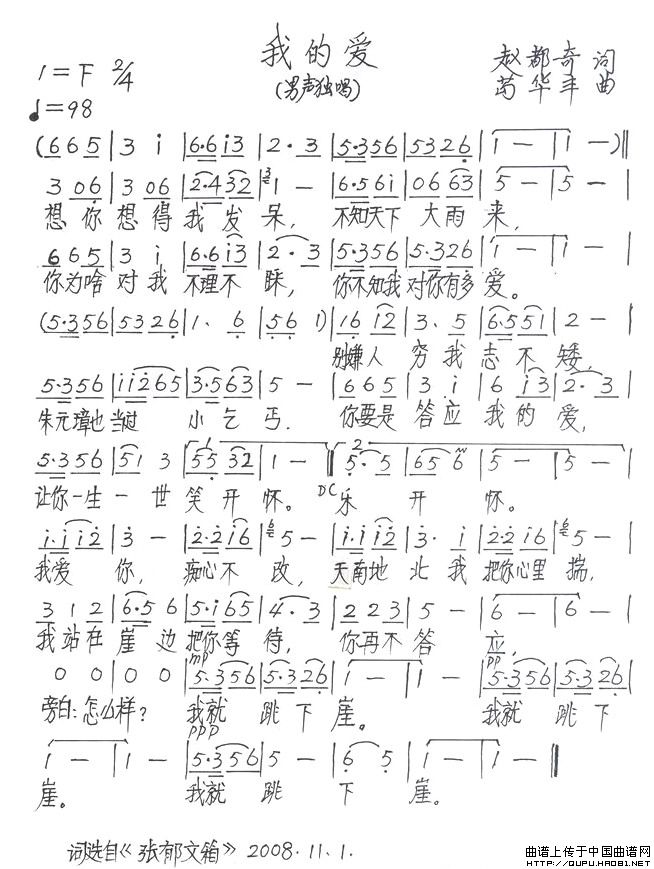 我的爱
1=F 2/4
(男声独唱)
赵都奇 词
苟华丰 曲
♩=98
(6 6 5 | 3 i | 6·6 i 3 | 2 · 3 | 5·3 5 6 | 5 3 2 6 | 1 — | 1 — )‖
3 0 6 | 3 0 6 | 2·4 3 2 | 1 — | 6·5 6 i | 0 6 6 3 | 5 — | 5 — |
想你想得我发呆, 不知天下大雨来,
6 6 5 | 3 i | 6·6 i 3 | 2 · 3 | 5·3 5 6 | 5·3 2 6 | 1 — | 1 — |
你为啥对我不理不睬, 你不知我对你有多爱。
(5·3 5 6 | 5 3 2 6 | 1、 6 | 5 6 1) | 1 6 i 2 | 3、 5 | 6·5 5 1 | 2 — |
别嫌人穷我志不矮,
5·3 5 6 | i i 2 6 5 | 3·5 6 3 | 5 — | 6 6 5 | 3 i | 6 i 3 | 2 · 3 |
朱元璋也当过小乞丐. 你要是答应我的爱,
5·3 5 6 | 5 1 3 | 5 5 3 2 | 1 — ‖ 5 · 5 | 6 5 6 | 5 — | 5 — |
让你一生一世笑开怀。 DC 乐开怀。
i·i i 2 | 3 — | 2·2 i 6 | 5 — | i·i i 2 | 3· i | 2·2 i 6 | 5 — |
我爱你, 痴心不改, 天南地北我把你心里揣,
3 1 2 | 6·5 6 | 5·i 6 5 | 4 · 3 | 2 2 3 | 5 — | 6 — | 6 — |
我站在崖边把你等待, 你再不答应,
mp pp
0 0 | 0 0 | 5·3 5 6 | 5·3 2 6 | 1 — | 1 — | 5·3 5 6 | 5·3 2 6 |
旁白:怎么样? 我就跳下崖。 我就跳下
ppp
1 — | 1 — | 5·3 5 6 | 5 — | 6 5 | 1 — | 1 — ‖
崖。 我就跳下崖。
词选自《张郁文箱》2008.11.1.
曲谱上传于中国曲谱网
HTTP://QUPU.HAO81.NET